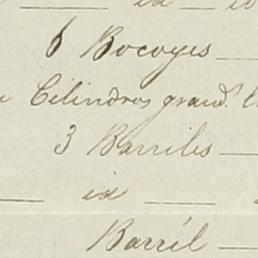 id
6 Bocoyes
Cilindros grand.
3 Barriles
id
Barril